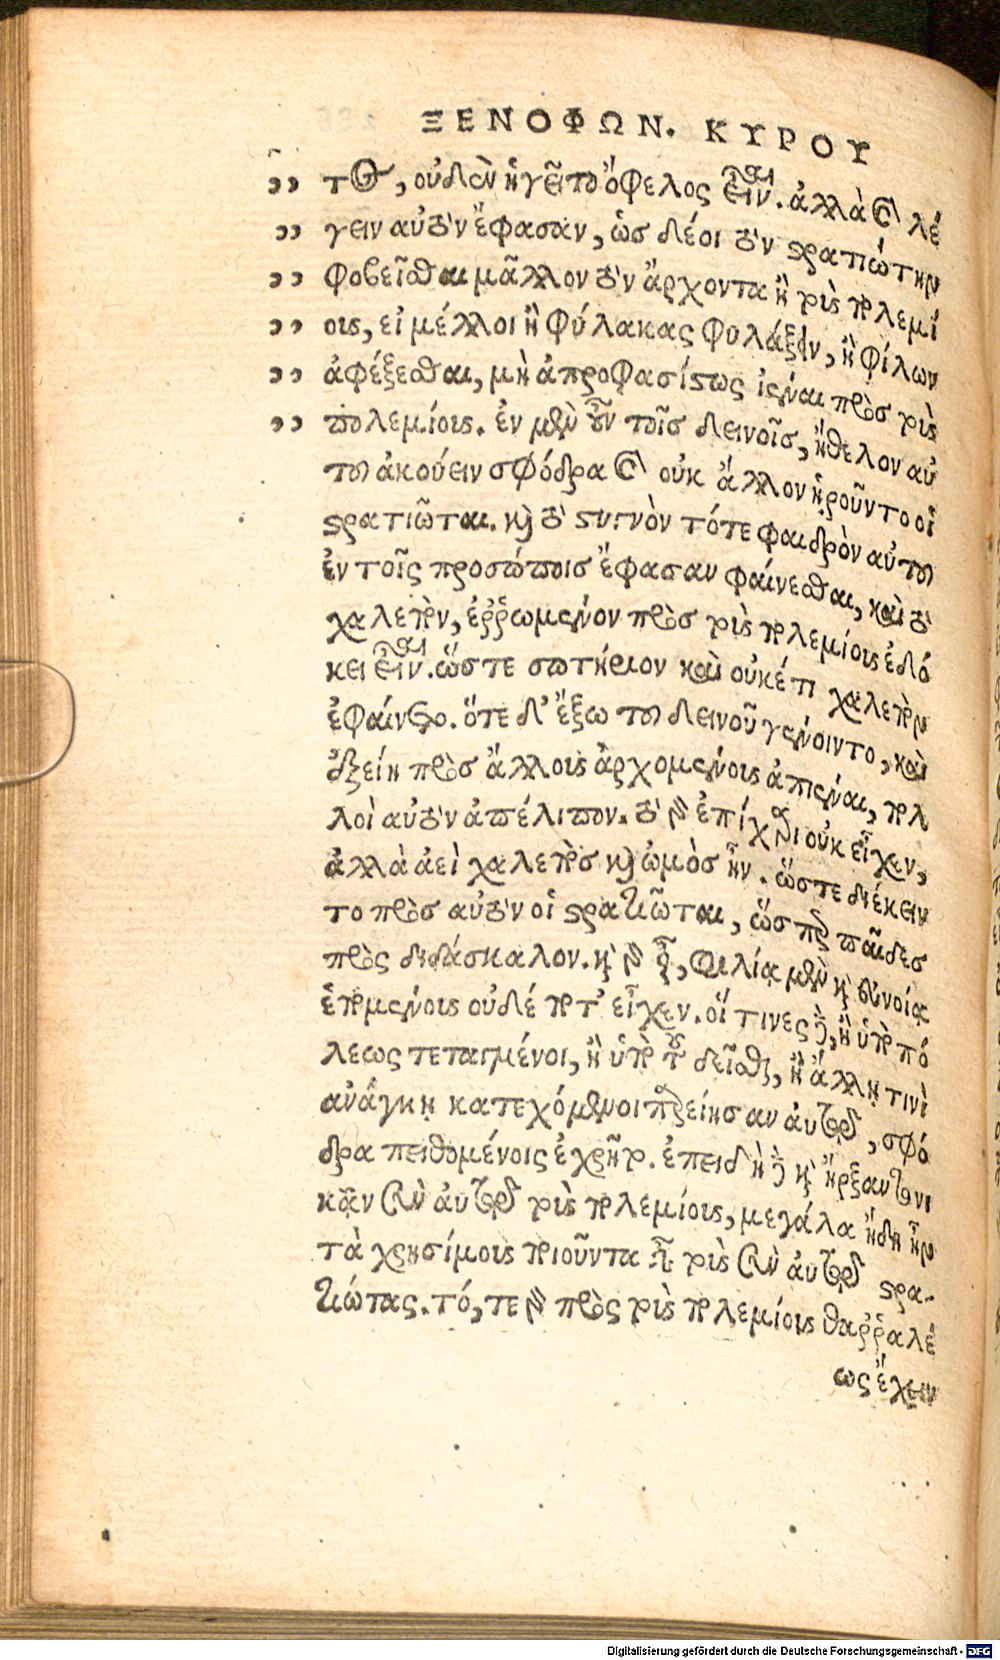 ΞΕΝΟΦΩΝ. ΚΥΡΟΥ
,, τος, οὐδὲν ἡγεῖτο ὄφελος εἶναι. ἀλλὰ καὶ λέ
,, γειν αὐτὸν ἔφασαν, ὡς δέοι τὸν στρατιώτην
,, φοβεῖσθαι μᾶλλον τὸν ἄρχοντα ἢ τοὺς πολεμί
,, ους, εἰ μέλλοι ἢ φύλακας φυλάξειν, ἢ φίλων
,, ἀφέξεσθαι, μὴ ἀπροφασίστως ἰέναι πρὸς τοὺς
,, πολεμίους. ἐν μὲν οὖν τοῖς δεινοῖς, ἤθελον αὐ
του ἀκούειν σφόδρα καὶ οὐκ ἄλλον ᾑροῦντο οἱ
στρατιῶται. καὶ τὸ στυγνὸν τότε φαιδρὸν αὐτου
ἐν τοῖς προσώποις ἔφασαν φαίνεσθαι, καὶ τὸ
χαλεπὸν, ἐῤῥωμένον πρὸς τοὺς πολεμίους ἐδό
κει εἶναι. ὥστε σωτήριον καὶ οὐκέτι χαλεπὸν
ἐφαίνετο. ὅτε δ' ἔξω του δεινοῦ γένοιντο, καὶ
ἐξείη πρὸς ἄλλους ἀρχομένους ἀπιέναι, πολ
λοὶ αὐτὸν ἀπέλιπον. τὸ γὰρ ἐπίχαρι οὐκ εἶχεν,
ἀλλὰ ἀεὶ χαλεπὸς καὶ ὠμὸς ἦν. ὥστε διέκειν
το πρὸς αὐτὸν οἱ στρατιῶται, ὥσπερ παῖδες
πρὸς διδάσκαλον. καὶ γὰρ οὖν, φιλίᾳ μὲν καὶ εὐνοίᾳ
ἑπομένους οὐδέ ποτ' εἶχεν. οἵ τινες δὲ, ἢ ὑπὸ πό
λεως τεταγμένοι, ἢ ὑπὸ τοῦ δεῖσθαι, ἢ ἄλλῃ τινὶ
ἀνάγκῃ κατεχόμενοι παρείησαν αὐτῷ, σφό
δρα πειθομένοις ἐχρῆτο. ἐπειδὴ δὲ καὶ ἤρξαντο νι
κᾷν σὺν αὐτῷ τοὺς πολεμίους, μεγάλα ἤδη ἦν
τὰ χρησίμους ποιοῦντα εἶναι τοὺς σὺν αὐτῷ στρα-
τιώτας. τό, τε γὰρ πρὸς τοὺς πολεμίους θαῤῥαλέ
ως ἔχειν
Digitalisierung gefördert durch die Deutsche Forschungsgemeinschaft - DFG